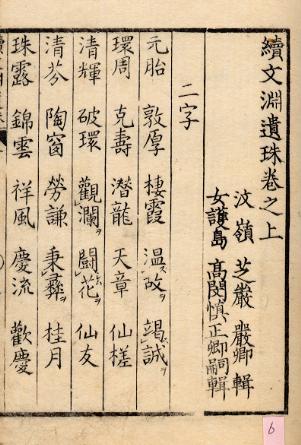 續文淵遺珠卷之上
汶嶺 芝巖嚴卿 輯
女護島 髙閔慎正卿嗣輯
二字
元胎 敦厚 棲霞 温故ヲ 竭誠ヲ
環周 克壽 潛龍 天章 仙槎
清輝 破環 觀瀾ヲ 鬪花ヲ 仙友
清芬 陶窗 勞謙 秉彝ヲ 桂月
珠露 錦雲 祥風 慶流 歡慶
6